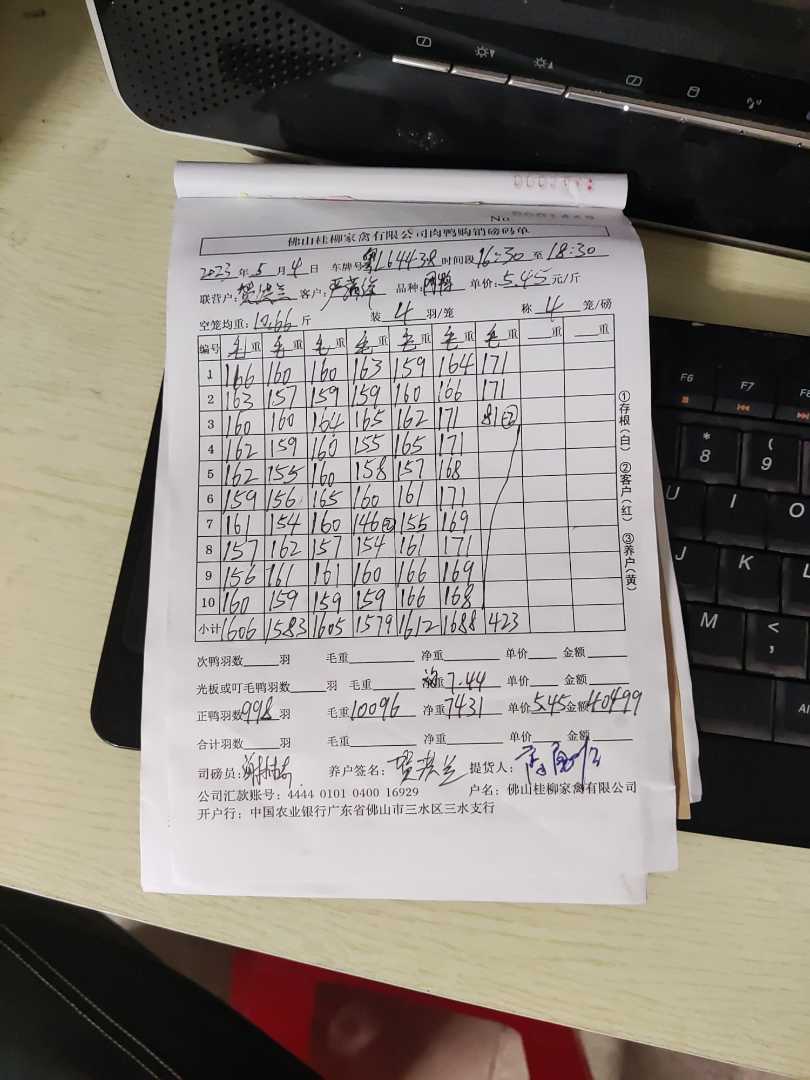 No
佛山桂柳家禽有限公司肉鸭购销磅码单
2023 年 5 月 4 日 车牌号 粤L64438 时间段 16:30 至 18:30
联营户: 客户: 品种: 单价: 5.45 元/斤
空笼均重: 12.66 斤 装 4 羽/笼 称 4 笼/磅
编号 毛重 毛重 毛重 毛重 毛重 毛重 毛重 重 重
1 166 160 160 163 159 164 171
2 163 157 159 159 160 166 171
3 160 160 164 165 162 171 81②
4 162 159 160 155 165 171
5 162 155 160 158 157 168
6 159 156 165 160 161 171
7 161 154 160 146 155 169
8 157 162 157 154 161 171
9 156 161 161 160 166 169
10 160 159 159 159 166 168
小计 1606 1583 1605 1579 1612 1688 423
①存根(白) ②客户(红) ③养户(黄)
次鸭羽数 羽 毛重 净重 单价 金额
光板或叮毛鸭羽数 羽 毛重 重 7.44 单价 金额
正鸭羽数 998 羽 毛重 10096 净重 7431 单价 5.45 金额 40499
合计羽数 羽 毛重 净重 单价 金额
司磅员: 养户签名: 提货人:
公司汇款账号: 4444 0101 0400 16929 户名: 佛山桂柳家禽有限公司
开户行: 中国农业银行广东省佛山市三水区三水支行
F6
F7
F8
*
8
(
9
U
I
O
J
K
L
M
<
,